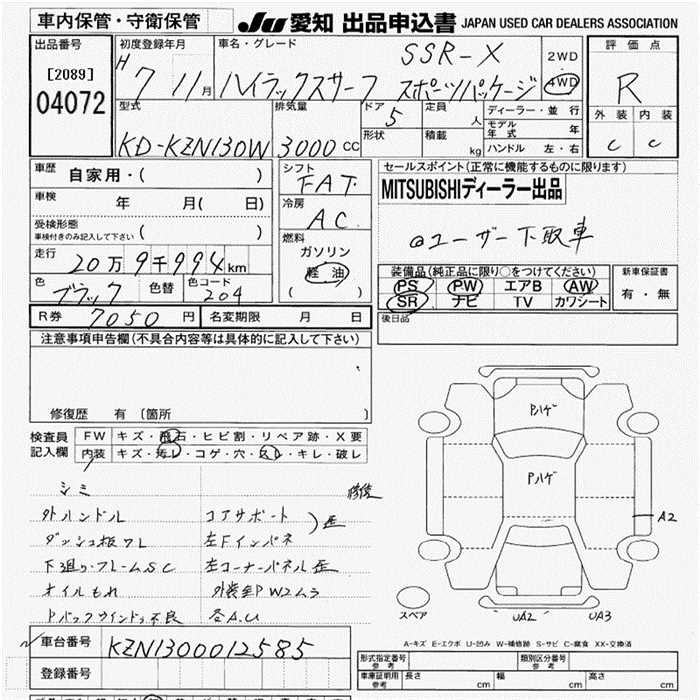 車内保管・守衛保管
JU 愛知 出品申込書 JAPAN USED CAR DEALERS ASSOCIATION
出品番号
[2089]
04072
初度登録年月
H 7 11月
車名・グレード
SSR-X
ハイラックスサーフ スポーツパッケージ
2WD
4WD
評価点
R
外装 内装
C C
型式
KD-KZN130W
排気量
3000 cc
ドア
5
形状
定員
人
積載
kg
ディーラー・並行
モデル年式 年
ハンドル 左・右
車歴
自家用・( )
車検
年 月( 日)
受検形態
車検付きのみ記入して下さい ( )
走行
20万9千994km
色
ブラック
色替
色コード
204
シフト
FAT
冷房
AC
燃料
ガソリン
軽油
( )
セールスポイント(正常に機能するものに限ります)
MITSUBISHIディーラー出品
@ユーザー下取車
装備品(純正品に限り○をつけてください)
PS PW エアB AW
SR ナビ TV カワシート
新車保証書
有・無
後日品
R券 7050円
名変期限 月 日
注意事項申告欄(不具合内容等は具体的に記入して下さい)
修復歴 有 [箇所 ]
検査員
記入欄
FW キズ・飛石・ヒビ割・リペア跡・X要
内装 キズ・汚レ・コゲ・穴・スレ・キレ・破レ
シミ
修復
外ハンドル
コアサポート
ダッシュ板ワレ
左Fインパネ
下廻り・フレームSC
左コーナーパネル
オイルもれ
Pバックウインドゥ不良
各A.U
Pハゲ
Pハゲ
A2
UA2
UA3
スペア
A-キズ E-エクボ U-凹み W-補修跡 S-サビ C-腐食 XX-交換済
車台番号
KZN1300012585
登録番号
形式指定番号
参考
類別区分番号
参考
車庫証明用
参考
長さ cm
幅 cm
高さ cm